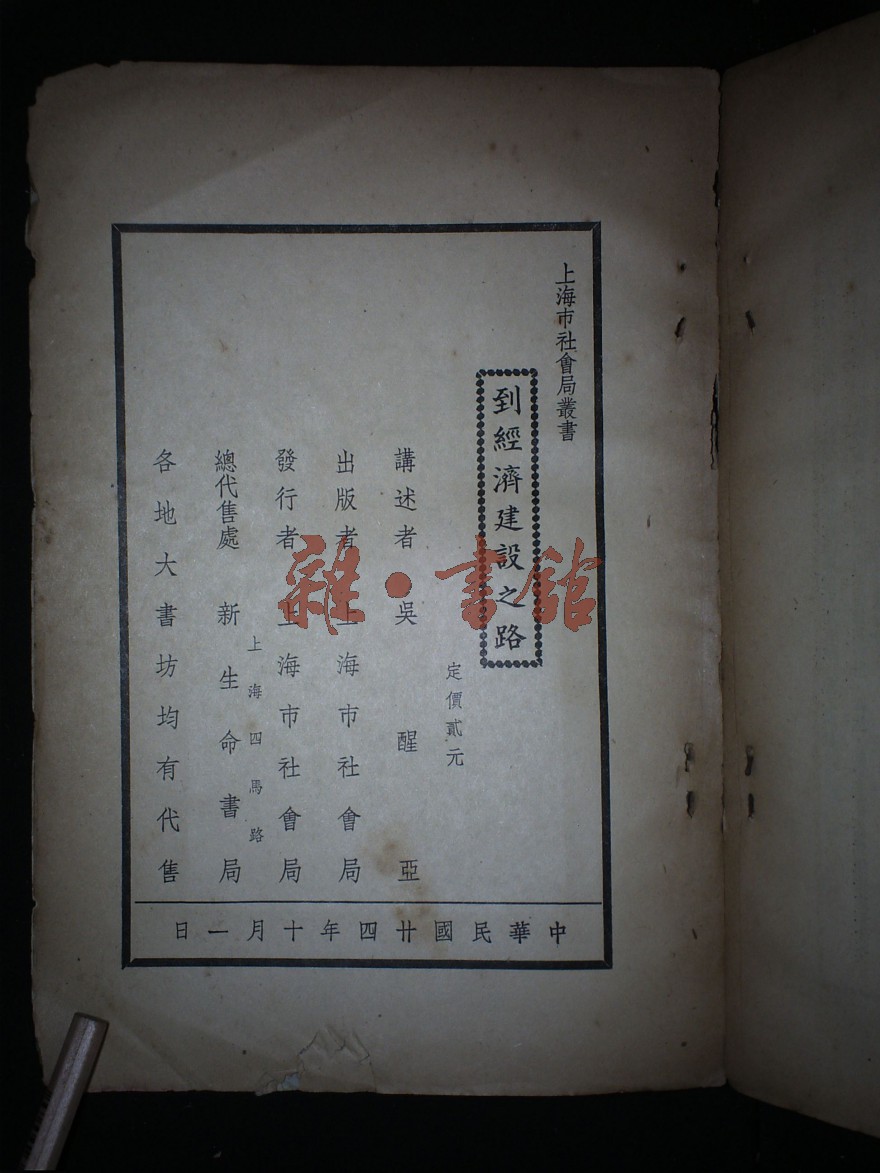 上海市社會局叢書
到經濟建設之路
定價貳元
講述者 吳醒亞
出版者 上海市社會局
發行者 上海市社會局
上海四馬路
總代售處 新生命書局
各地大書坊均有代售
中華民國廿四年十月一日
雜·書館